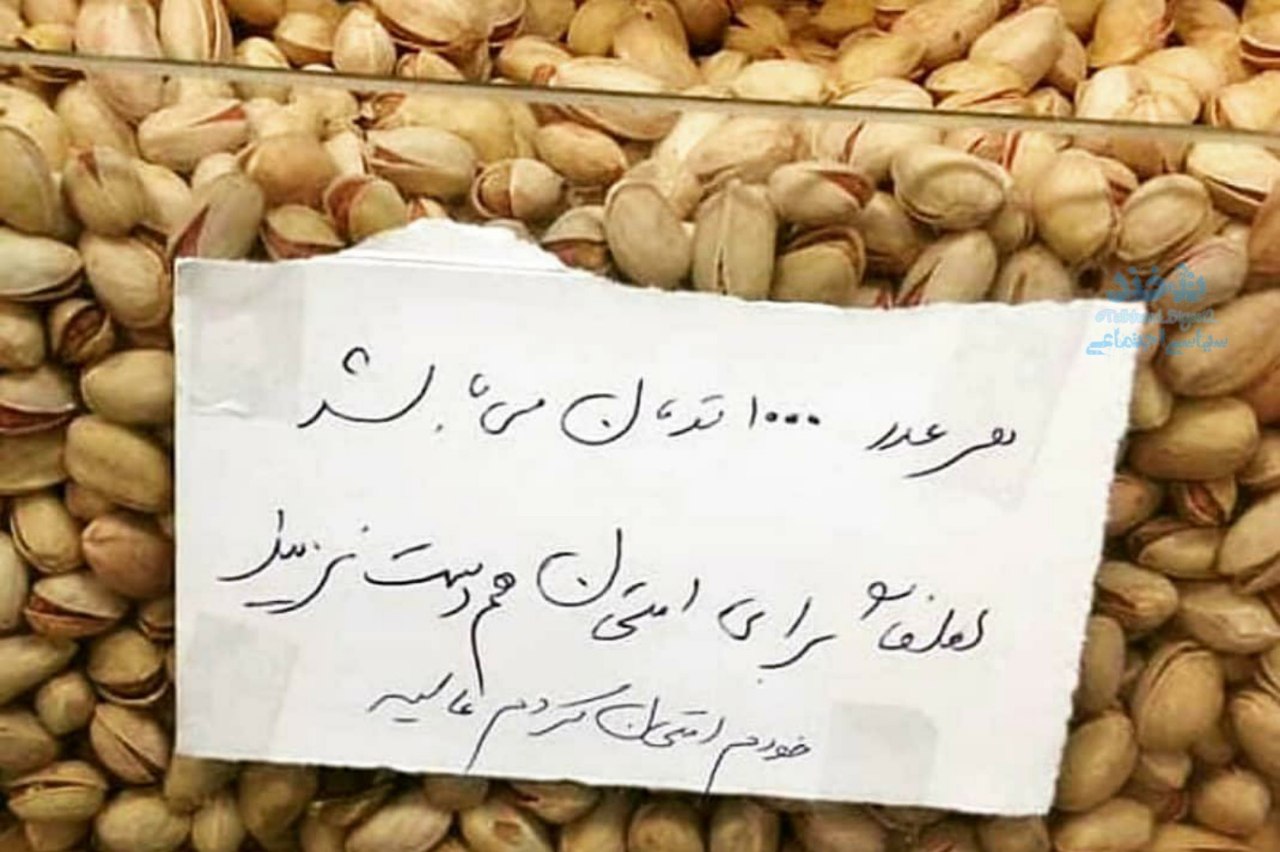 هر عدد ۱۰۰۰ تومان می باشد
لطفاً برای امتحان هم دست نزنید
خودم امتحان کردم عالیه
ترفند
سیاسی اجتماعی